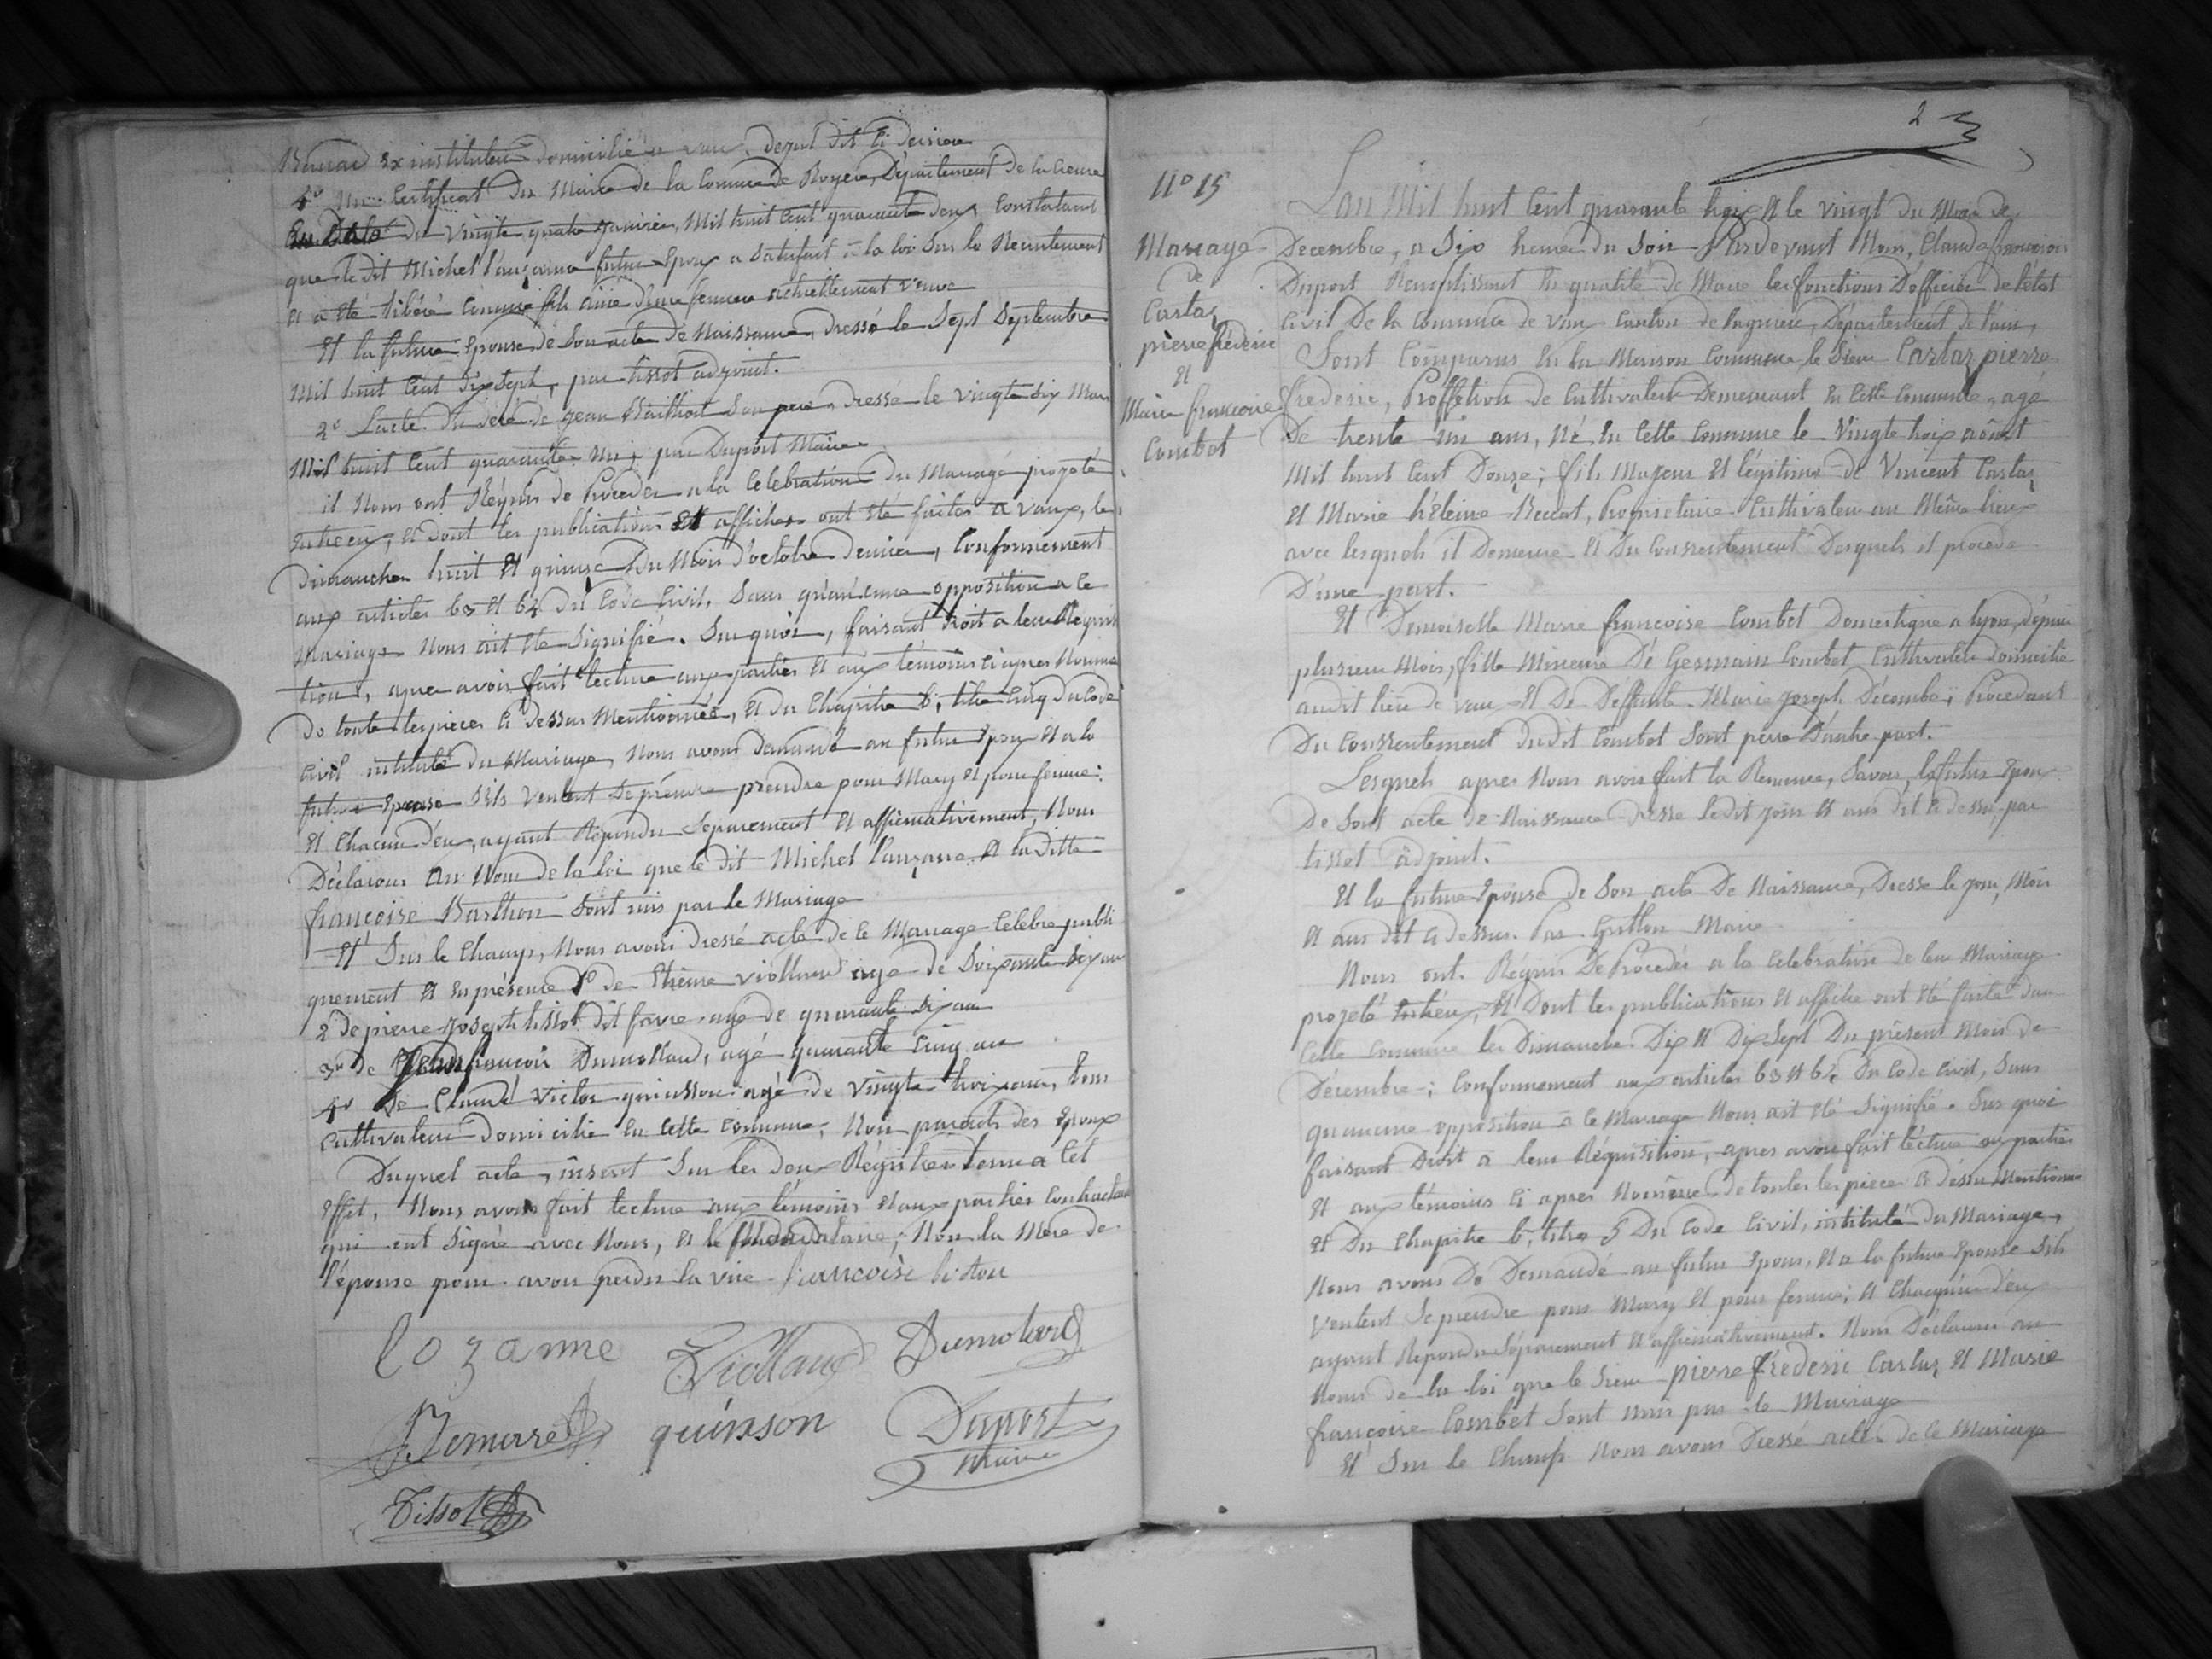 Bavard ex instituteur domicilié a vaux, depui dit ci dessu
4° Un Certificat du Maire de la Commune de Royere, Département de la Creuse
En Date du Vingte quatre Janvier, Mil huit Cent quarante deux, Constatant
que le dit Michel Lauzanne futur Epoux a Satisfait à la loi Sur le Recrutement
Et a été libéré Comme fils ainé d'une femme actuellement veuve
Et la future Epouse de Son acte de Naissance, dressé le Sept Septembre
Mil huit Cent dix Sept, par tissot adjoint.
2° L'acte du décé de Jean Barthon Son pere, dressé le vingte Six Mars
Mil huit Cent quarante un, par Duport Maire
il Nous ont Réquis de Proceder a la Celebration du Mariage projeté
entre eux, Et dont les publications Et affiches ont été faites a vaux, le
Dimanches huit Et quinze Du Mois d'octobre dernier, Conformement
aux articles 63 Et 64 du Code Civil, Sans qu'aucune opposition a ce
Mariage Nous ait été Signifié. Sur quoi, faisant droit a leur Requisi
tion, apres avoir fait lecture aux parties Et aux témoins ci apres Nommé
De toute les pieces Ci dessus Mentionnées, Et du Chapitre 6, titre Cinq du Code
Civil intitulé du Mariage, Nous avons demandé au futur Epoux Et a la
future Epouse S'ils Veulent Se prendre pour Mary Et pour femme:
Et Chacun d'eux, ayant Répondu Séparement Et affirmativement, Nous
Déclarons Au Nom de la loi que le dit Michel Lauzanne Et la ditte
françoise Barthon Sont unis par le Mariage
Et Sur le Champ, Nous avons Dressé acte de ce Mariage Célébré publi
quement Et En présence 1° de Etienne viollaud agé de Soixante Six ans
2° de pierre Joseph tissot dit favre agé de quarante Six ans
3° de Jean françois Dumollard, agé quarante Cinq ans
4° De Claude Victor quinsson agé de Vingte trois ans, tous
Cultivateurs Domicilié En Cette Commune, Non parents des Epoux
Duquel acte, inscrit Sur les deux Régistres tenu a Cet
Effet, Nous avons fait lecture aux témoins Et aux parties Contractantes
qui ont Signé avec Nous, Et le Mandataire, Non la Mere de
l'épouse pour avoir perdu la vue françoise
lozanne Viollaud Dumolard
quinson Duport
Maire
Tissot
2
N° 15
Mariage
de
Cartaz
pierre fréderic
Et
Marie françoise
Combet
L'an Mil huit Cent quarante troix Et le vingt du Mois de
Decembre, a Six heure du Soir Pardevant Nous, Claude françois
Duport Remplissant En qualité de Maire les fonctions D'officier de l'état
Civil De la Commune de Vaux Canton de lagnieu, Département de l'ain,
Sont Comparus En la Maison Commune le Sieur Cartaz pierre
frederic, Proffetion de Cultivateur Demeurant En Cette Commune, agé
De trente un ans, Né En Cette Commune le Vingte troix août
Mil huit Cent Douze, fils Majeur Et légitime de Vincent Cartaz
Et Marie héleine Beccat, Proprietaire Cultivateur au Même lieux
avec lesquels il Demeure Et Du Conssentement Desquels il procede
D'une part.
Et Demoiselle Marie françoise Combet Domestique a lyon, dépuis
plusieur Mois, fille Mineure De Germain Combet Cultivateur Domicilié
audit lieu de vaux Et De Deffunte Marie joseph Décombe, Procedant
Du Conssentement dudit Combet Sont pere D'autre part.
Lesquels apres Nous avoir fait la Remise, Savoir, le futur Epoux
De Sont acte de Naissance dresse ledit jour Et ans dit Ci dessus par
tissot âdjoint.
Et la future Epouse de Son acte De Naissance, Dresse le jour, Mois
Et ans dit Ci dessus. Par Maire
Nous ont Réquis De Proceder a la Celebration de leur Mariage
projeté Entre eux, Et Dont les publications Et affiche ont été faite dans
Cette Commune les Dimanche Dix Et Dix Sept Du présent Mois de
Décembre; Conformement aux articles 63 Et 64 Du Code Civil, Sans
qu'aucune opposition à ce Mariage Nous ait été Signifié. Sur quoi
faisant Droit à leur Réquisition, apres avoir fait lécture aux parties
Et aux témoins Ci apres Nommé de toutes les pieces Ci déssus Mentionné
Et Du Chapitre 6, titre 5 Du Code Civil, intitulé du Mariage,
Nous avons De Demandé au futur Epoux, Et a la future Epouse S'ils
Veulent Se prendre pour Mary Et pour femme; Et Chacqu'un d'eux
ayant Répondu Séparement Et affirmativement. Nous Déclarons au
Nom de la loi que le Sieur pierre fréderic Cartaz Et Marie
françoise Combet Sont unis par le Mariage
Et Sur le Champ Nous avons Dressé acte de ce Mariage